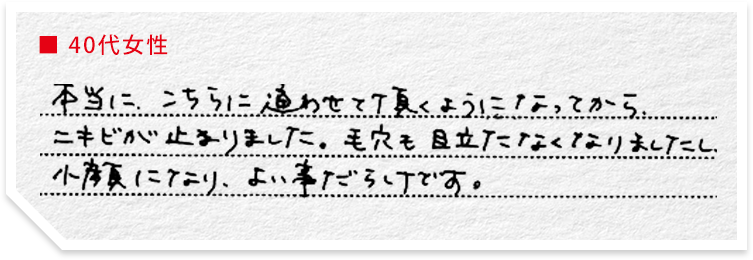 ■ 40代女性
本当に、こちらに通わせて頂くようになってから、
ニキビが止まりました。毛穴も目立たなくなりましたし、
小顔になり、よい事だらけです。